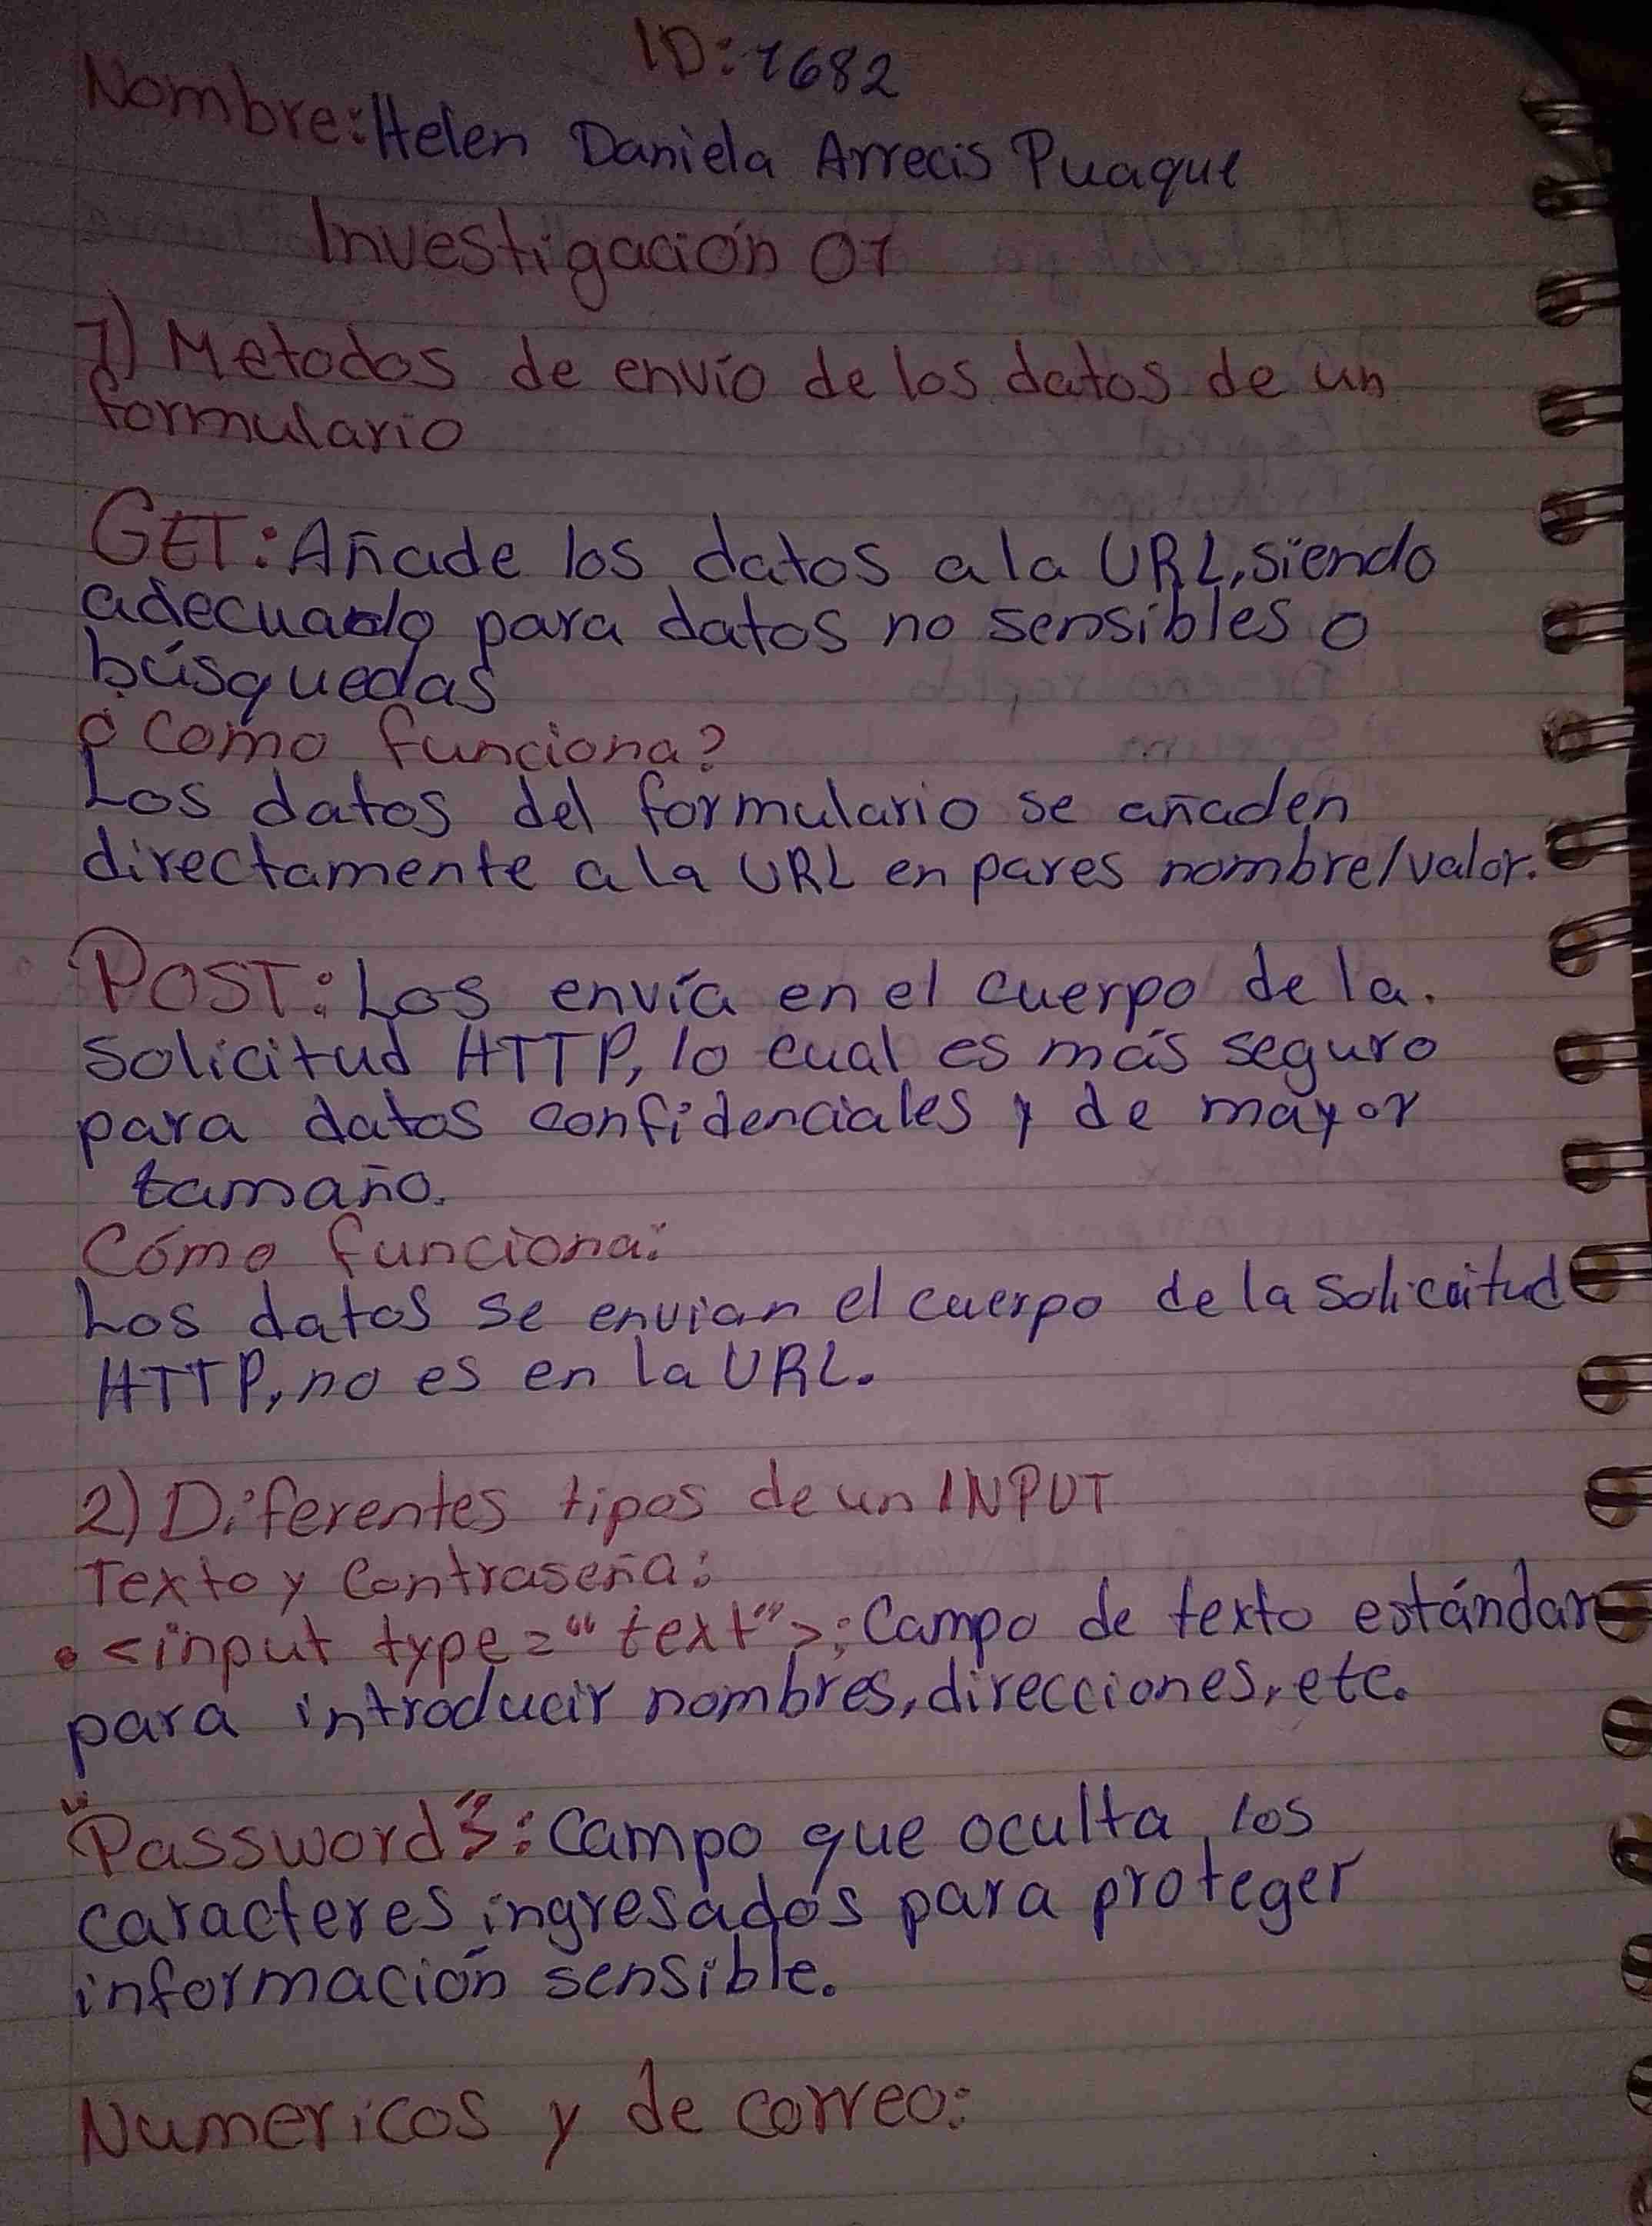 ID: 1682
Nombre: Helen Daniela Arrecis Puaque
Investigación 01
1) Metodos de envío de los datos de un
formulario
GET: Añade los datos a la URL, siendo
adecuado para datos no sensibles o
búsquedas
¿Como funciona?
Los datos del formulario se añaden
directamente a la URL en pares nombre/valor.
POST: Los envía en el cuerpo de la.
solicitud HTTP, lo cual es más seguro
para datos confidenciales y de mayor
tamaño.
Cómo funciona:
Los datos se envian el cuerpo de la solicitud
HTTP, no es en la URL.
2) Diferentes tipos de un INPUT
Texto y Contraseña:
• <input type="text">: Campo de texto estándar
para introducir nombres, direcciones, etc.
"Password": Campo que oculta los
caracteres ingresados para proteger
información sensible.
Numericos y de correo: